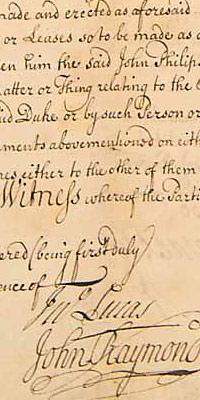 made and erected as aforesaid
or Leases so to be made as a
en him the said John Philips
atter or Thing relating to the
id Duke or by such Person or
uments abovementioned on eith
es either to the other of them
Witness whereof the Parti
ered (being first duly
ence of
Jno Lucas
John Raymond